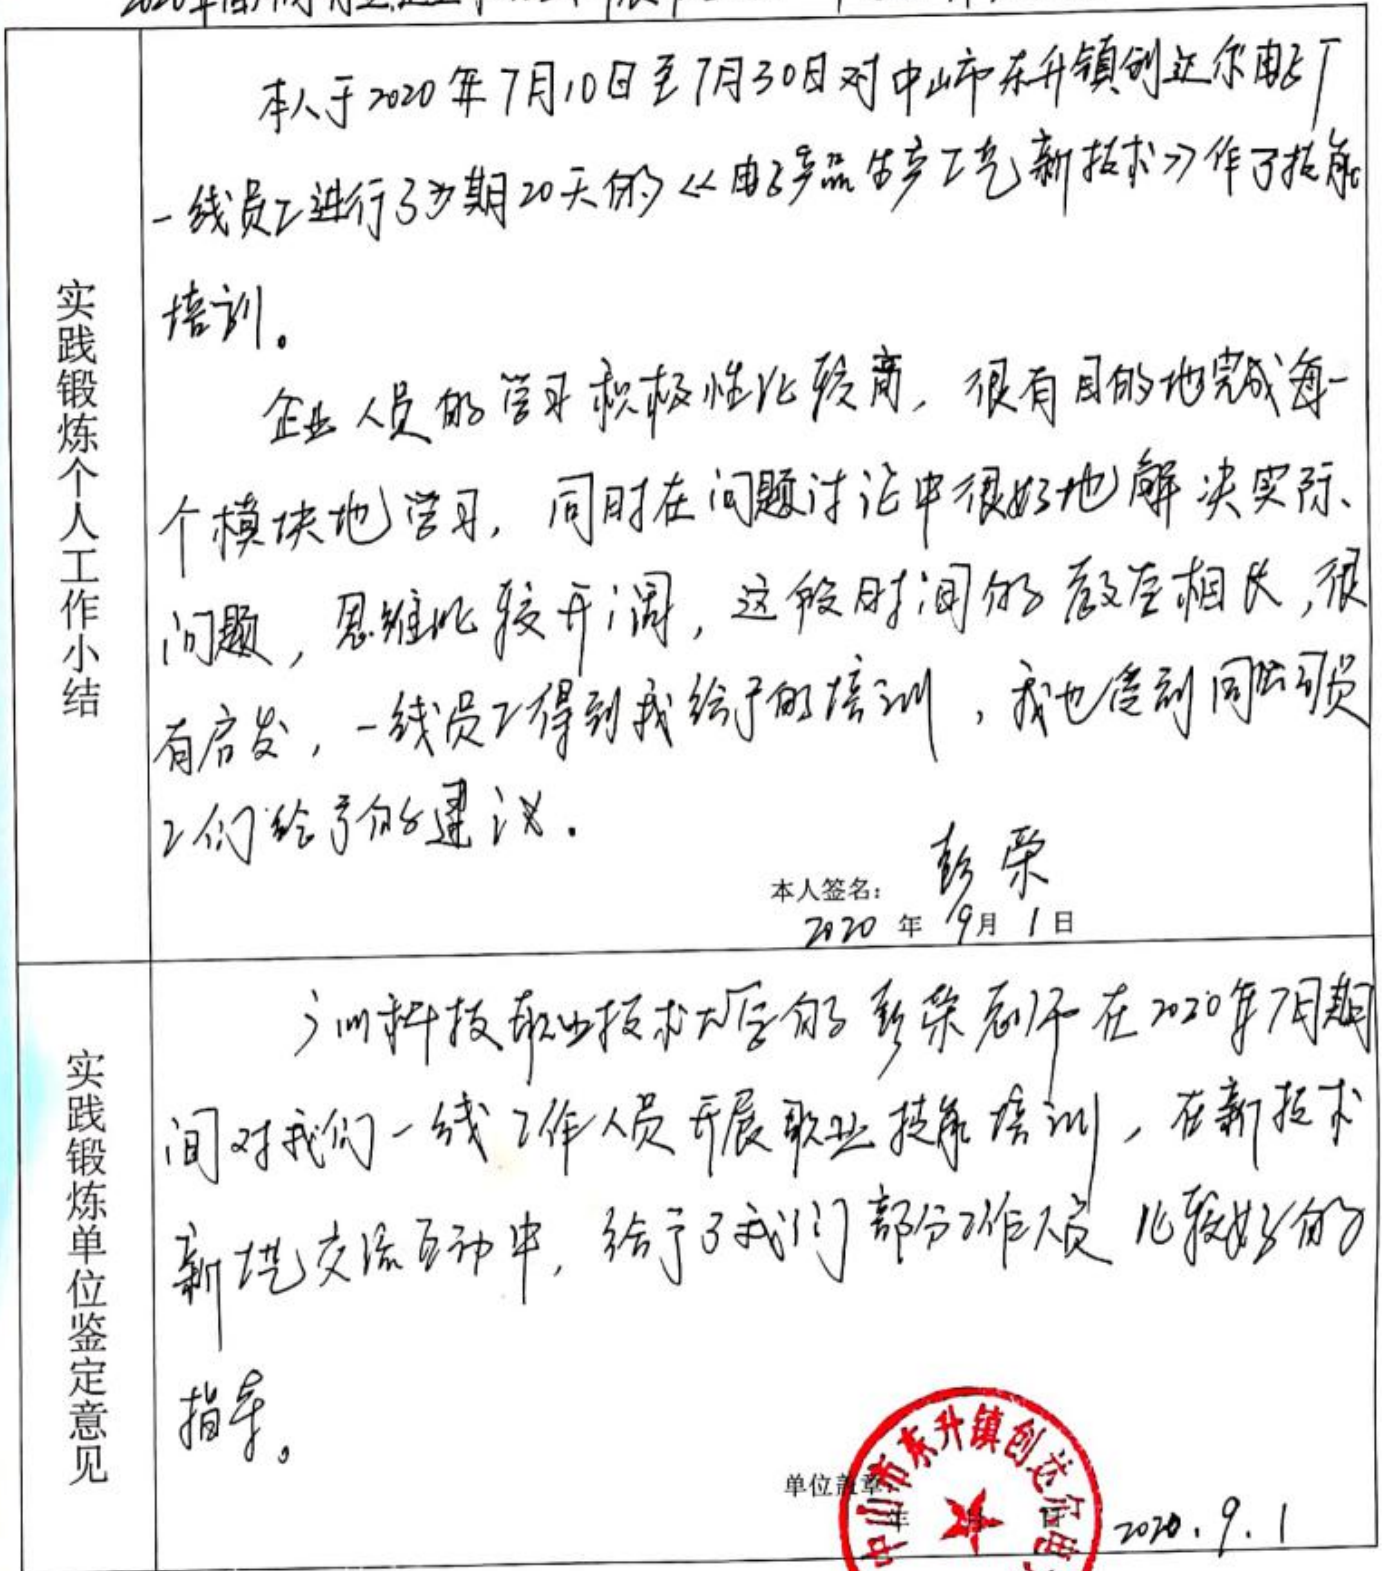 2020年
实践锻炼个人工作小结
本人于2020年7月10日至7月30日对中山市东升镇创达尔电子厂
一线员工进行了为期20天的《电子产品生产工艺新技术》作了技能
培训。
企业人员的学习积极性比较高，很有目的地完成每一
个模块地学习，同时在问题讨论中很好地解决实际、
问题，思维比较开阔，这段时间的教学相长，很
有启发，一线员工得到我给予的培训，我也受到同公司员
工们给予的建议.
本人签名：彭荣
2020年9月1日
实践锻炼单位鉴定意见
广州科技职业技术大学的彭荣老师在2020年7月期
间对我们一线工作人员开展职业技能培训，在新技术
新工艺交流互动中，给予了我们部分工作人员比较好的
指导。
单位盖章：
年 月 日 2020.9.1
中山市东升镇创达尔电